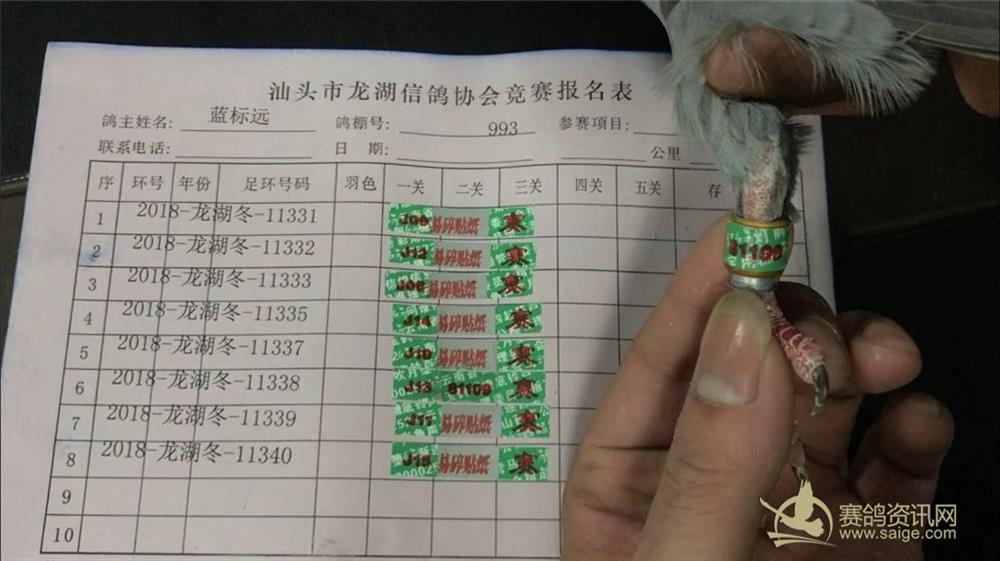 汕头市龙湖信鸽协会竞赛报名表
鸽主姓名: 蓝标远 鸽棚号: 993 参赛项目:
联系电话: 日 期: 公里
序 环号 年份 足环号码 羽色 一关 二关 三关 四关 五关 存
1 2018-龙湖冬-11331 J09 易碎贴纸 赛
2 2018-龙湖冬-11332 J12 易碎贴纸 赛
3 2018-龙湖冬-11333 易碎贴纸 赛
4 2018-龙湖冬-11335 J14 易碎贴纸 赛
5 2018-龙湖冬-11337 J10 易碎贴纸 赛
6 2018-龙湖冬-11338 J13 81109 赛
7 2018-龙湖冬-11339 J17 易碎贴纸 赛
8 2018-龙湖冬-11340 J15 易碎贴纸 赛
9
10
赛鸽资讯网
www.saige.com